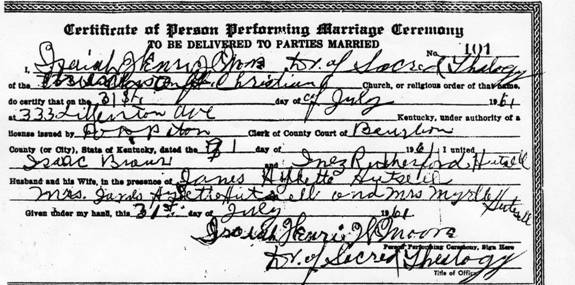 Certificate of Person Performing Marriage Ceremony
TO BE DELIVERED TO PARTIES MARRIED
No. 101
I, Isaiah Henri Moore Dr. of Sacred Theology
of the Christian Church, or religious order of that name,
do certify that on the 31st day of July 1961
at 333 Lilleston Ave Kentucky, under authority of a
license issued by Paton Clerk of County Court of Bourbon
County (or City), State of Kentucky, dated the 31 1961 I united
Isaac Brown and Inez Rutherford Hutsell
Husband and his Wife, in the presence of James Hutsell
Mrs. James Hutsell and Mrs Myrtle Hutsell
Given under my hand, this 31st day of July 1961
Isaiah Henri W Moore
Person Performing Ceremony, Sign Here
Dr. of Sacred Theology
Title of Office